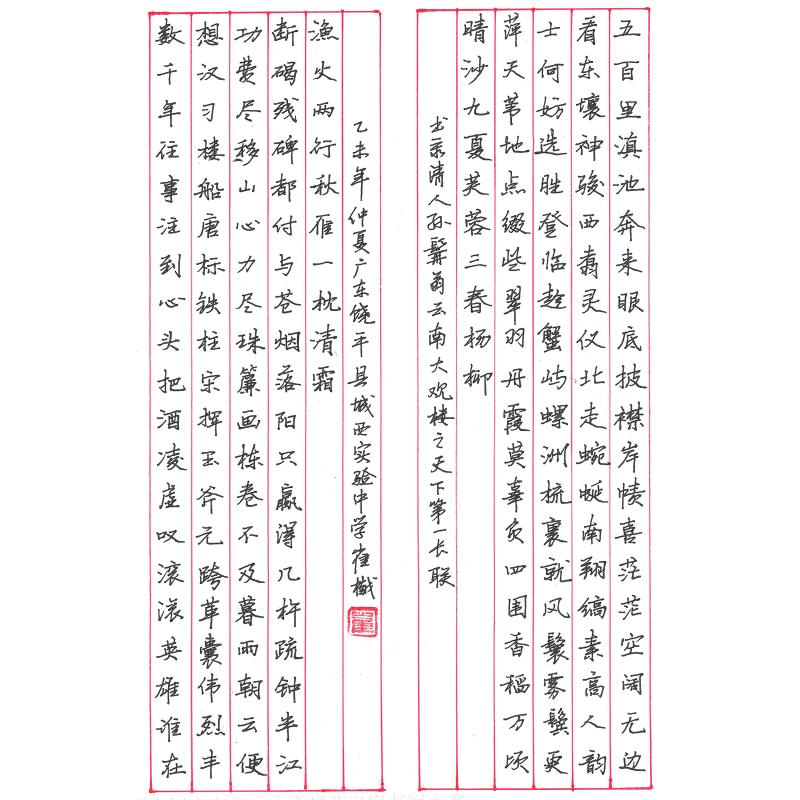 五百里滇池奔来眼底披襟岸帻喜茫茫空阔无边
看东壤神骏西翥灵仪北走蜿蜒南翔缟素高人韵
士何妨选胜登临趁蟹屿螺洲梳裹就风鬟雾鬓更
萍天苇地点缀些翠羽丹霞莫辜负四围香稻万顷
晴沙九夏芙蓉三春杨柳
书录清人孙髯翁云南大观楼之天下第一长联
数千年往事注到心头把酒凌虚叹滚滚英雄谁在
想汉习楼船唐标铁柱宋挥玉斧元跨革囊伟烈丰
功费尽移山心力尽珠簾画栋卷不及暮雨朝云便
断碣残碑都付与苍烟落阳只赢得几杵疏钟半江
渔火两行秋雁一枕清霜
乙未年仲夏广东饶平县城西实验中学崔